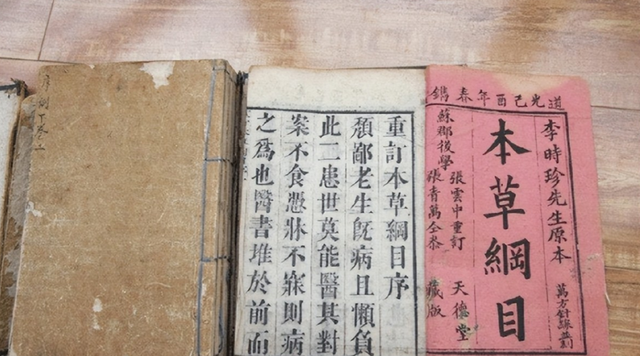 道光己酉年春鐫
李時珍先生原本
萬方針線
本草綱目
蘇郡後學
張雲中重訂
張青萬全參
天德堂
藏版
重訂本草綱目序
頽鄙老生旣病且懶負
此二患世莫能醫其對
案不食慿牀不寐則病
之爲也醫書堆於前而